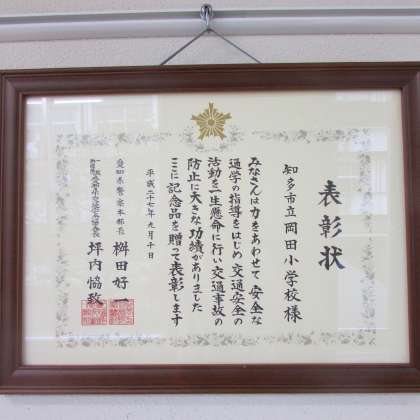 表彰状
知多市立岡田小学校様
みなさんは力をあわせて安全な
通学の指導をはじめ交通安全の
活動を一生懸命に行い交通事故の
防止に大きな功績がありました
ここに記念品を贈って表彰します
平成二十七年九月十日
愛知県警察本部長 桝田好一
坪内恊致